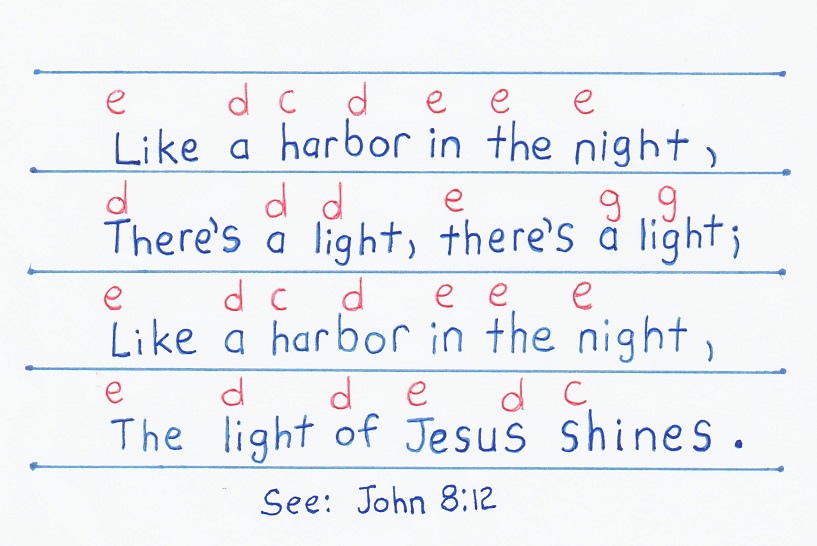 e d c d e e e
Like a harbor in the night,
d d d e g g
There's a light, there's a light;
e d c d e e e
Like a harbor in the night,
e d d e d c
The light of Jesus shines.
See: John 8:12